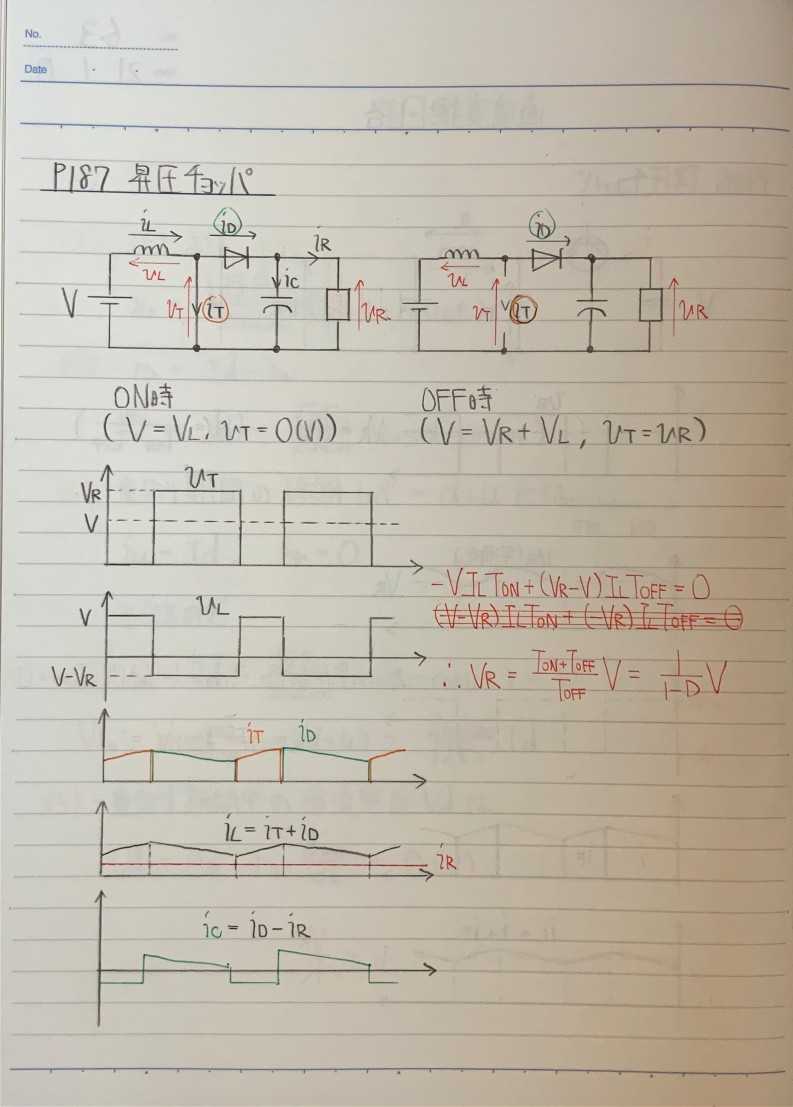 No.
Date
P187 昇圧チョッパ
iL iD iR iD
vL iC vL
V vT iT vR vT iT vR
ON時 OFF時
(V=VL, vT=0(V)) (V=VR+VL, vT=vR)
vT
VR
V
-VILTON+(VR-V)ILTOFF=0
V vL (V-VR)ILTON+(-VR)ILTOFF=0
V-VR ∴VR= TON+TOFF/TOFF V= 1/1-D V
iT iD
iL=iT+iD
iR
iC=iD-iR